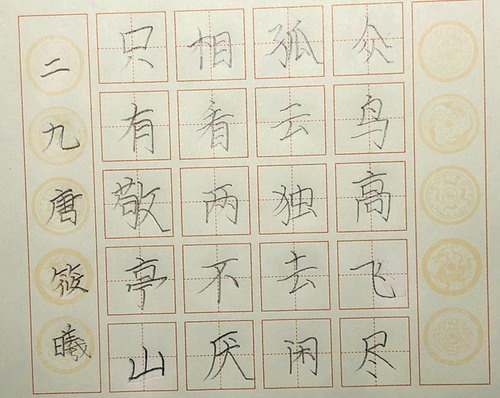 众鸟高飞尽
孤云独去闲
相看两不厌
只有敬亭山
二九唐筱曦